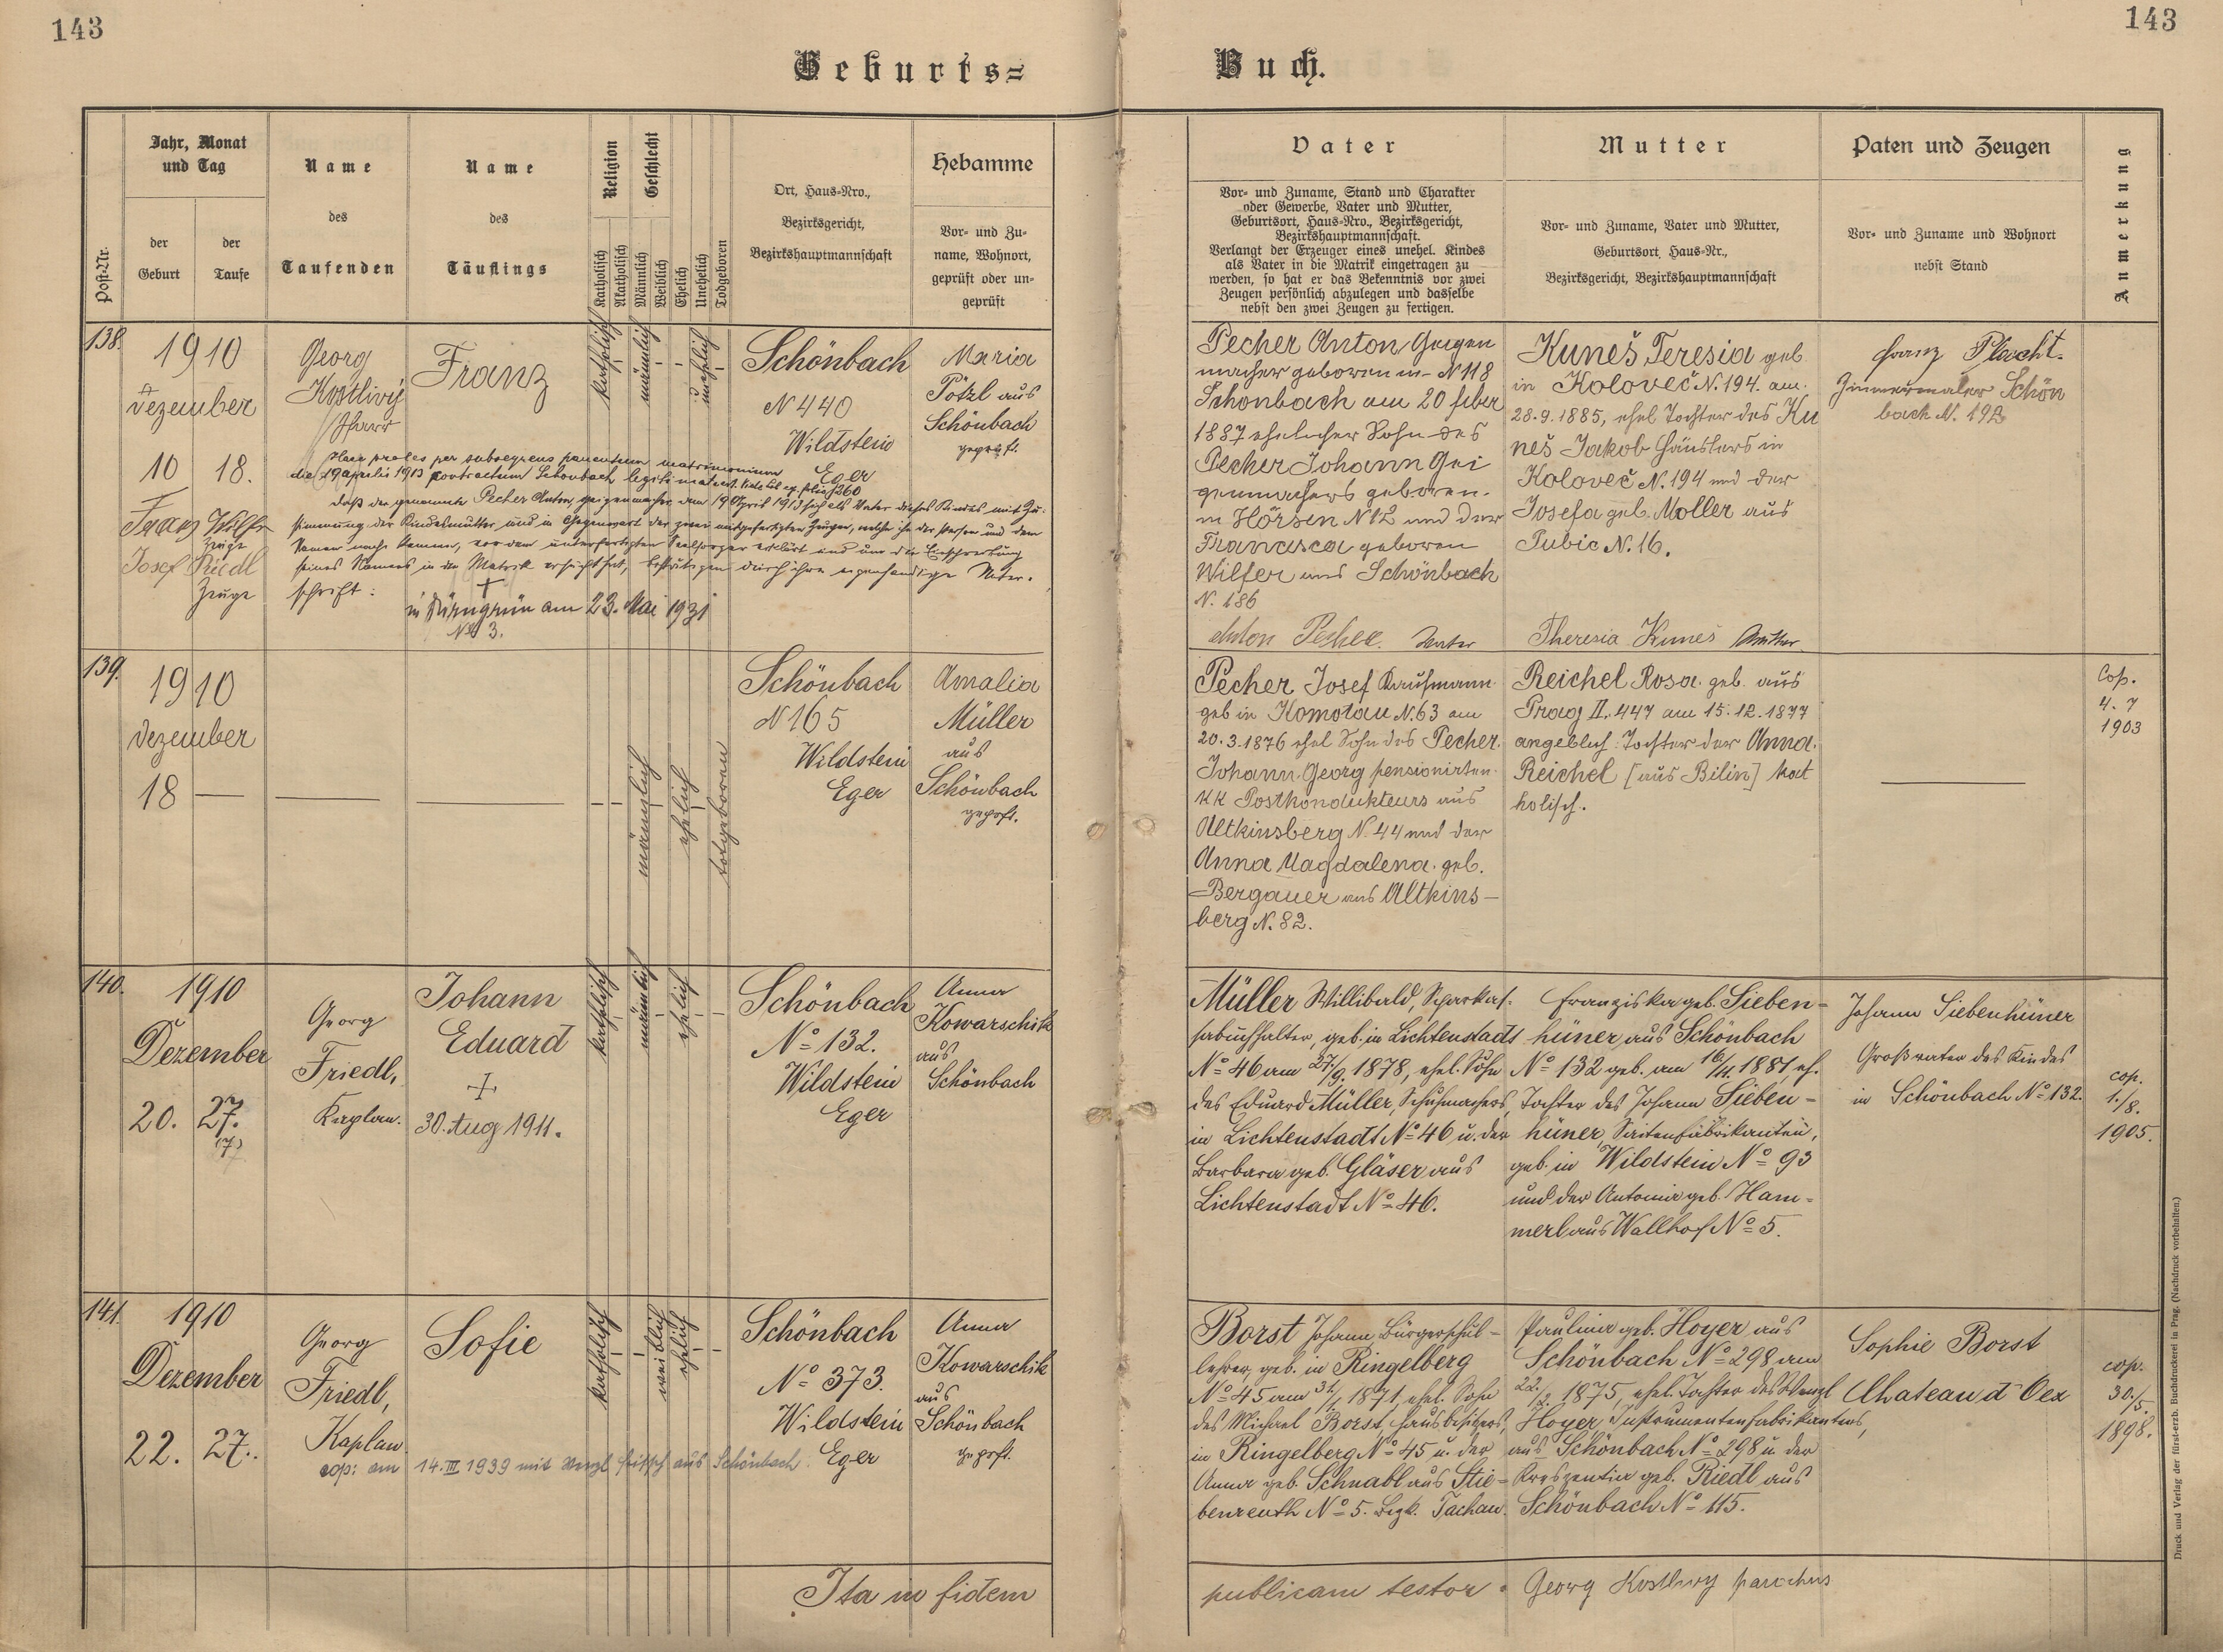 143
143
Geburts=
Buch.
Post-Nr.
Jahr, Monat
und Tag
der
Geburt
der
Taufe
Name
des
Taufenden
Name
des
Täuflings
Religion
Katholisch
Akatholisch
Geschlecht
Männlich
Weiblich
Ehelich
Unehelich
Todgeboren
Ort, Haus-Nro.,
Bezirksgericht,
Bezirkshauptmannschaft
Hebamme
Vor- und Zu-
name, Wohnort,
geprüft oder un-
geprüft
Vater
Vor- und Zuname, Stand und Charakter
oder Gewerbe, Vater und Mutter,
Geburtsort, Haus-Nro., Bezirksgericht,
Bezirkshauptmannschaft.
Verlangt der Erzeuger eines unehel. Kindes
als Vater in die Matrik eingetragen zu
werden, so hat er das Bekenntnis vor zwei
Zeugen persönlich abzulegen und dasselbe
nebst den zwei Zeugen zu fertigen.
Mutter
Vor- und Zuname, Vater und Mutter,
Geburtsort, Haus-Nr.,
Bezirksgericht, Bezirkshauptmannschaft
Paten und Zeugen
Vor- und Zuname und Wohnort
nebst Stand
Anmerkung
138.
1910
Dezember
10
18.
Georg
Kostlivý
Pfarr
Franz
katholisch
männlich
unehlich
Schönbach
N 440
Wildstein
Eger
Maria
Pötzl aus
Schönbach
geprft.
Haec proles per subsequens parentum matrimonium
die 29 aprilis 1913 contractum Schönbach legitimata est.
daß der genannte Pecher Anton, Geigenmacher am 19 April 1913 sich als Vater dieses Kindes mit Zu-
stimmung der Kindesmutter und in Gegenwart der zwei mitgefertigten Zeugen, welche ihn der Person und dem
Namen nach kennen, vor dem unterfertigten Seelsorger erklärt und um die Einschreibung
seines Namens in die Matrik ersucht hat, bestätigen durch ihre eigenhändige Unter-
schrift:
Franz Wilfer
Zeuge
Josef Riedl
Zeuge
+
in Dürngrün am 23. Mai 1931
No 3.
Pecher Anton Geigen
macher geboren in N 118
Schönbach am 20 feber
1887 ehelicher Sohn des
Pecher Johann Gei
genmachers geboren
in Hörsin N 12 und der
Francisca geboren
Wilfer aus Schönbach
N. 186
Anton Pecher Vater
Kuneš Teresia geb
in Koloveč N. 194. am
28.9.1885, ehel Tochter des Ku
neš Jakob Häuslers in
Koloveč N. 194 und der
Josefa geb. Moller aus
Pubic N. 16.
Theresia Kuneš Mutter
Franz Placht.
Zimmermaler Schön
bach N. 192
139.
1910
Dezember
18
männlich
ehelich
totgeboren
Schönbach
N 165
Wildstein
Eger
Amalia
Müller
aus
Schönbach
geprft.
Pecher Josef Kaufmann
geb in Komotau N. 63 am
20.3.1876 ehel Sohn des Pecher
Johann Georg pensionirten
KK Postkondukteurs aus
Altkinsberg N. 44 und der
Anna Magdalena geb.
Bergauer aus Altkins-
berg N. 82.
Reichel Rosa geb aus
Prag II. 447 am 15.12.1877
angeblich: Tochter der Anna
Reichel [aus Bilin] kat
holisch.
Cop.
4. 7
1903
140.
1910
Dezember
20.
27.
(7)
Georg
Friedl,
Kaplan.
Johann
Eduard
+
30. Aug 1911.
katholisch
männlich
ehelich
Schönbach
No 132.
Wildstein
Eger
Anna
Kowarschik
aus
Schönbach
Müller Willibald, Sparkas-
sabuchhalter, geb. in Lichtenstadt
No 46 am 27/9. 1878, ehel. Sohn
des Eduard Müller, Schuhmachers,
in Lichtenstadt No 46 u. der
Barbara geb. Gläser aus
Lichtenstadt No 46.
Franziska geb. Sieben-
hüner, aus Schönbach
No 132 geb. am 16/4. 1881, eh.
Tochter des Johann Sieben-
hüner, Saitenfabrikanten,
geb. in Wildstein No 93
und der Antonia geb. Ham-
merl aus Wallhof No 5.
Johann Siebenhüner
Großvater des Kindes
in Schönbach No 132.
cop.
1./8.
1905.
141.
1910
Dezember
22.
27.
Georg
Friedl,
Kaplan.
Sofie
katholisch
weiblich
ehelich
Schönbach
No 373.
Wildstein
Eger
Anna
Kowarschik
aus
Schönbach
geprft.
cop: am 14. III 1939 mit Wenzl Fritsch aus Schönbach.
Borst Johann, Bürgerschul-
lehrer, geb. in Ringelberg
No 45 am 31/1. 1871, ehel. Sohn
des Michael Borst, Hausbesitzers,
in Ringelberg No 45 u. der
Anna geb. Schnabl aus Stie-
benreuth No 5. Bezk. Tachau.
Paulina geb. Hoyer aus
Schönbach No 298 am
22./2. 1875, ehel. Tochter des Wenzl
Hoyer, Instrumentenfabrikanten,
aus Schönbach No 298 u. der
Kreszentia geb. Riedl aus
Schönbach No 115.
Sophie Borst
Chateau d'Oex
cop.
30./5.
1898.
Ita in fidem
publicam testor.
Georg Kostlivý parochus
Druck und Verlag der fürst-erzb. Buchdruckerei in Prag. (Nachdruck vorbehalten.)